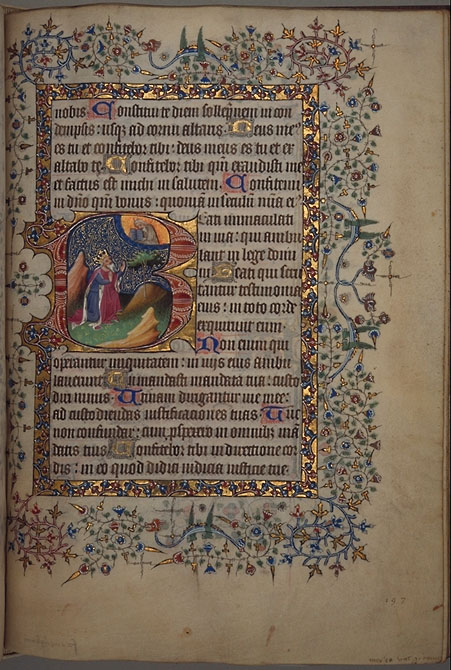 nobis. Constituite diem sollempnem in con
dempsis: usq; ad cornu altaris. Deus me
es tu et confitebor tibi: deus meus es tu et ex
altabo te. Confitebor tibi qm exaudisti me
et factus est michi in salutem. Confitemi
ni dno qm bonus: quoniam in seculu mia ei
Eati immaculati
in via: qui ambu
lant in lege domi
ni. Beati qui scru
tantur testimonia
eius: in toto corde
exquirunt eum
Non enim qui
operantur iniquitatem: in vijs eius ambu
laverunt. Tu mandasti mandata tua: custo
diri nimis. Utinam dirigantur vie mee:
ad custodiendas iustificaciones tuas. Tunc
non confundar: cum pspexero in omnibus man
datis tuis. Confitebor tibi in directione cor
dis: in eo quod didici iudicia iusticie tue.